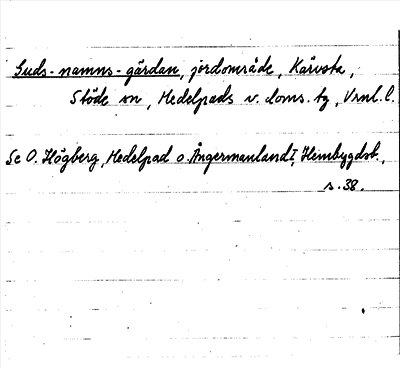 Guds-namns-gärdan, jordområde, Kärvsta,
Stöde sn, Medelpads v. doms. tg, Vrnl. l.
Se O. Högberg, Medelpad o. Ångermanland I, Heimbygdst.,
s. 38.